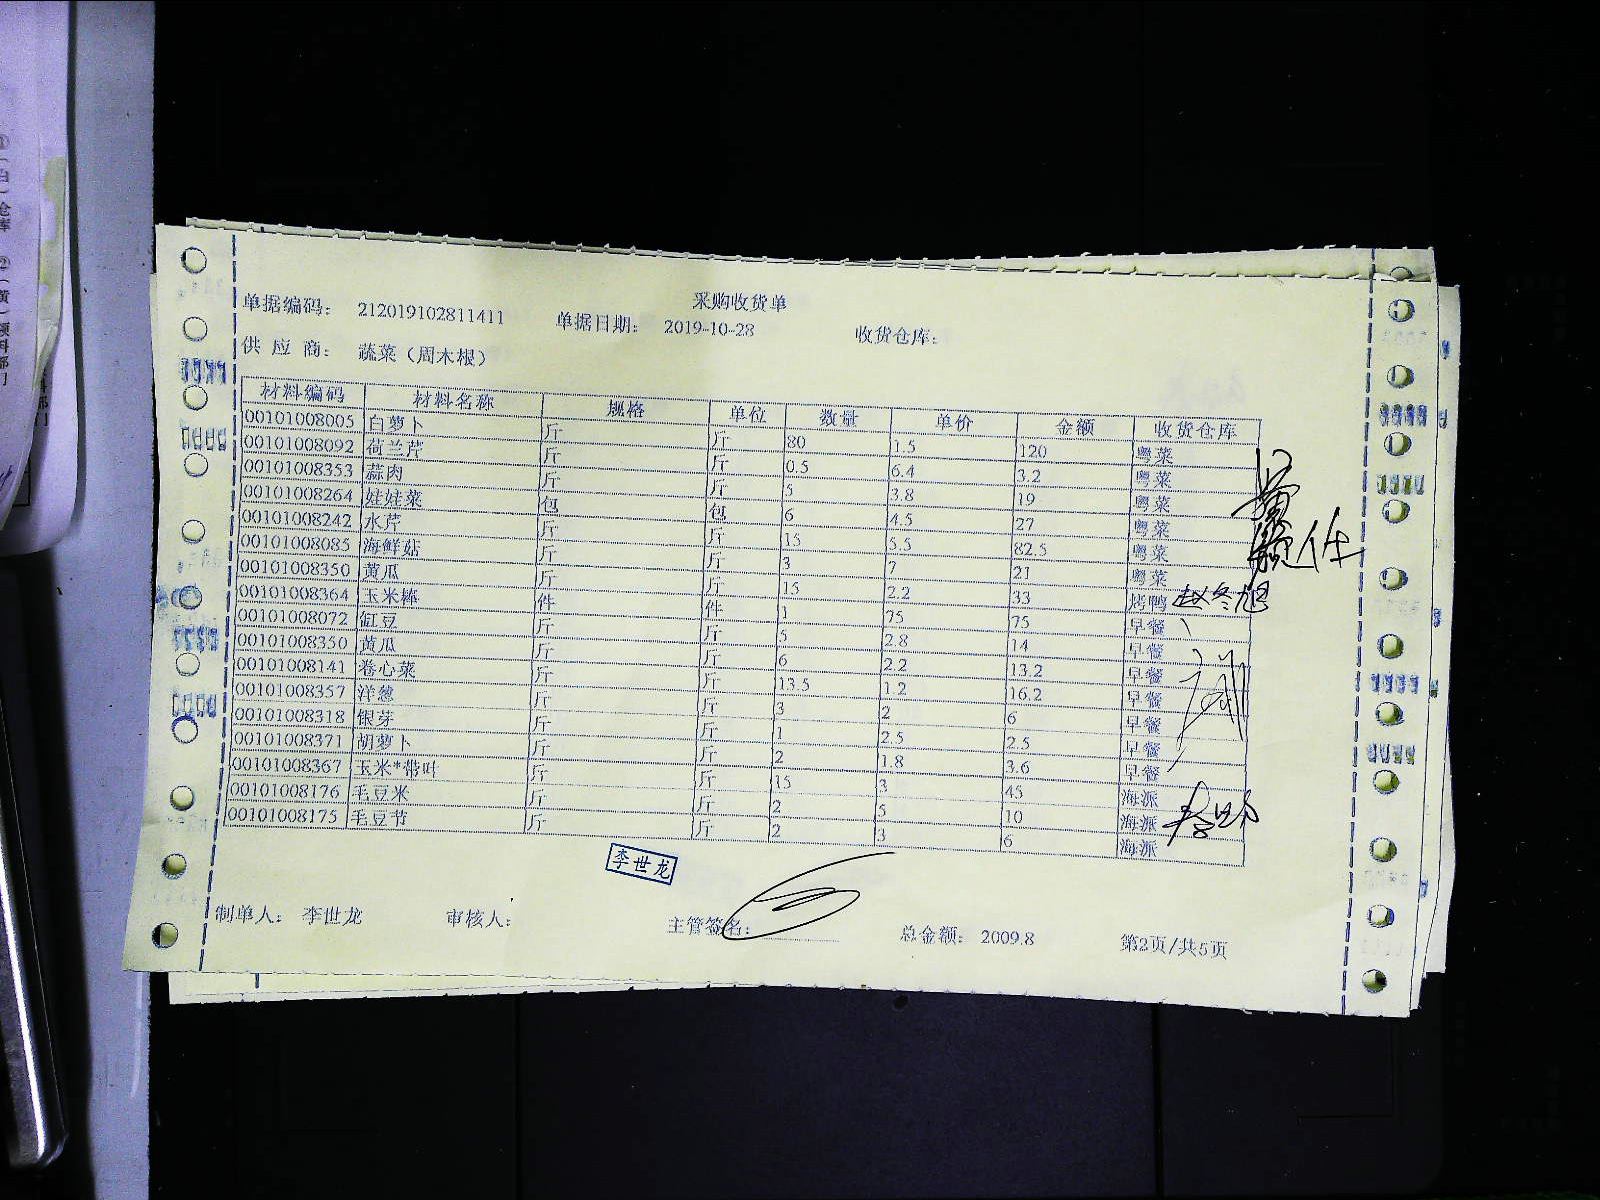 采购收货单
单据编码: 212019102811411 单据日期: 2019-10-28 收货仓库:
供应商: 蔬菜(周木根)
材料编码 材料名称 规格 单位 数量 单价 金额 收货仓库
00101008005 白萝卜 斤 斤 80 1.5 120 粤菜
00101008092 荷兰芹 斤 斤 0.5 6.4 3.2 粤菜
00101008353 蒜肉 斤 斤 5 3.8 19 粤菜
00101008264 娃娃菜 包 包 6 4.5 27 粤菜
00101008242 水芹 斤 斤 15 5.5 82.5 粤菜
00101008085 海鲜菇 斤 斤 3 7 21 粤菜
00101008350 黄瓜 斤 斤 15 2.2 33 烤鸭 赵冬旭
00101008364 玉米棒 件 件 1 75 75 早餐
00101008072 缸豆 斤 斤 5 2.8 14 早餐
00101008350 黄瓜 斤 斤 6 2.2 13.2 早餐
00101008141 卷心菜 斤 斤 13.5 1.2 16.2 早餐
00101008357 洋葱 斤 斤 3 2 6 早餐
00101008318 银芽 斤 斤 1 2.5 2.5 早餐
00101008371 胡萝卜 斤 斤 2 1.8 3.6 早餐
00101008367 玉米*带叶 斤 斤 15 3 45 海派
00101008176 毛豆米 斤 斤 2 5 10 海派
00101008175 毛豆节 斤 斤 2 3 6 海派
李世龙
制单人: 李世龙 审核人: 主管签名: 总金额: 2009.8 第2页/共5页